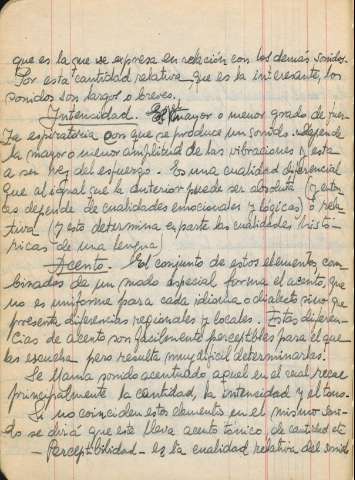 que es la que se expresa en relación con los demás sonidos.
Por esta cantidad relativa, que es la interesante, los
sonidos son largos o breves.
Intensidad. Es el mayor o menor grado de fuer-
za espiratoria con que se produce un sonido. Depende
la mayor o menor amplitud de las vibraciones y esta
a ser vez del esfuerzo. Es una cualidad diferencial
que al igual que la anterior puede ser absoluta (y enton-
ces depende de cualidades emocionales y lógicas) o rela-
tiva (y esto determina en parte las cualidades histó-
ricas de una lengua)
Acento. El conjunto de estos elementos com-
binados de un modo especial forma el acento, que
no es uniforme para cada idioma o dialecto sino que
presenta diferencias regionales y locales. Estas diferen-
cias de acento son fácilmente perceptibles para el que
les escucha pero resulta muy difícil determinarlas.
Se llama sonido acentuado aquel en el cual recae
principalmente la cantidad, la intensidad y el tono.
Si no coinciden estos elementos en el mismo soni-
do se dirá que este lleva acento tónico, de cantidad, etc
- Perceptibilidad - es la cualidad relativa del sonid